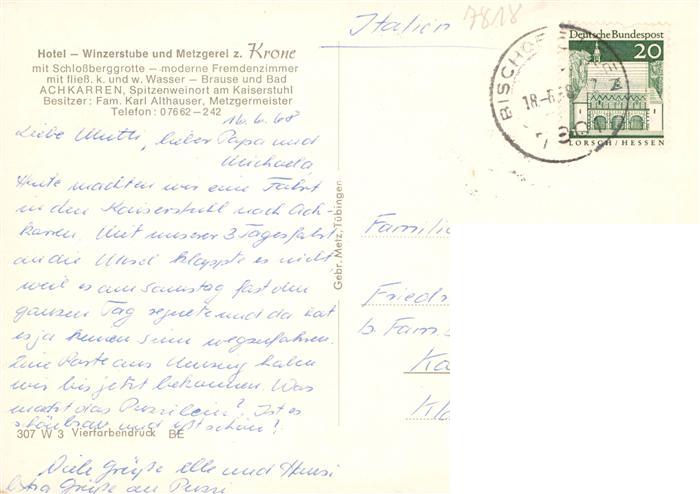 Hotel – Winzerstube und Metzgerei z. Krone
mit Schloßberggrotte – moderne Fremdenzimmer
mit fließ. k. und w. Wasser – Brause und Bad
ACHKARREN, Spitzenweinort am Kaiserstuhl
Besitzer: Fam. Karl Althauser, Metzgermeister
Telefon: 07662-242
16.6.68
Liebe Mutti, lieber Papa und
Michaela,
Heute machten wir eine Fahrt
in den Kaiserstuhl nach Ach-
karren. Mit unserer 3 Tagesfahrt
an die Mosel klappte es nicht
weil es am Samstag fast den
ganzen Tag regnete und da hat
es ja keinen Sinn wegzufahren.
Eine Karte aus haben
wir bis jetzt bekommen. Was
macht das Pussilein? Ist es
und ißt schön?
307 W 3 Vierfarbendruck BE
Viele Grüße elle und Hansi
Extra Grüße an Pussi
Gebr. Metz, Tübingen
Italien
7818
Deutsche Bundespost
20
LORSCH/HESSEN
BISCHOF
18.-6.68
Familie
Friedr
b. Fam.
Ka
Kla